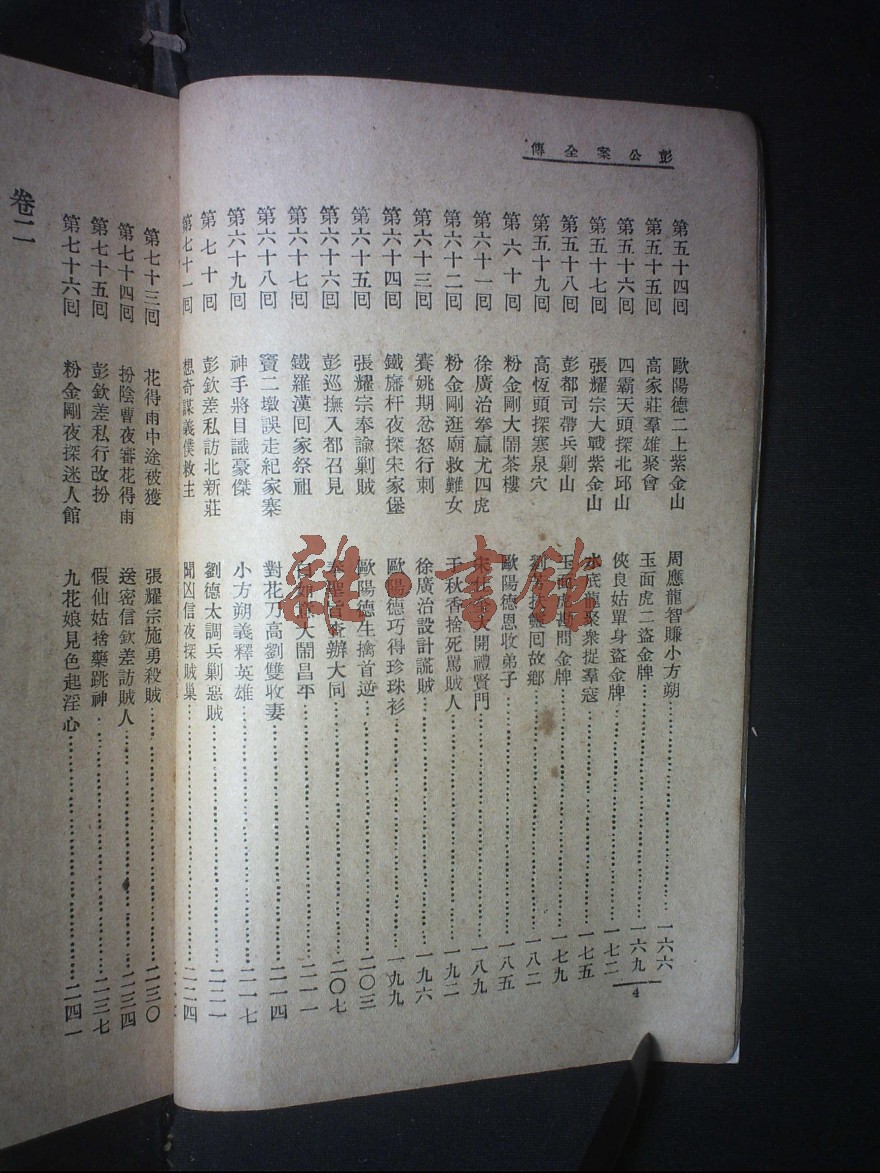 彭公案全傳
第五十四回 歐陽德二上紫金山 周應龍智賺小方朔 一六六
第五十五回 高家莊羣雄聚會 玉面虎二盜金牌 一六九
第五十六回 四霸天頭探北邱山 俠良姑單身盜金牌 一七二
第五十七回 張耀宗大戰紫金山 水底龍聚衆捉羣寇 一七五
第五十八回 彭都司帶兵剿山 玉面虎勘問金牌 一七九
第五十九回 高恆頭探寒泉穴 劉芳扶靈回故鄉 一八二
第六十回 粉金剛大鬧茶樓 歐陽德恩收弟子 一八五
第六十一回 徐廣治拳贏尤四虎 宋仕奎大開禮賢門 一八九
第六十二回 粉金剛逛廟救難女 于秋香捨死罵賊人 一九二
第六十三回 賽姚期忿怒行刺 徐廣治設計謊賊 一九六
第六十四回 鐵旛杆夜探宋家堡 歐陽德巧得珍珠衫 一九九
第六十五回 張耀宗奉諭剿賊 歐陽德生擒首逆 二〇三
第六十六回 彭巡撫入都召見 奉聖旨查辦大同 二〇七
第六十七回 鐵羅漢回家祭祖 白如意大鬧昌平 二一一
第六十八回 竇二墩誤走紀家寨 對花刀高劉雙收妻 二一四
第六十九回 神手將目識豪傑 小方朔義釋英雄 二一七
第七十回 彭欽差私訪北新莊 劉德太調兵剿惡賊 二二一
第七十一回 想奇謀義僕救主 聞凶信夜探賊巢 二二四
第七十三回 花得雨中途被獲 張耀宗施勇殺賊 二三〇
第七十四回 扮陰曹夜審花得雨 送密信欽差訪賊人 二三四
第七十五回 彭欽差私行改扮 假仙姑捨藥跳神 二三七
第七十六回 粉金剛夜探迷人館 九花娘見色起淫心 二四一
卷二
4
雜·書館